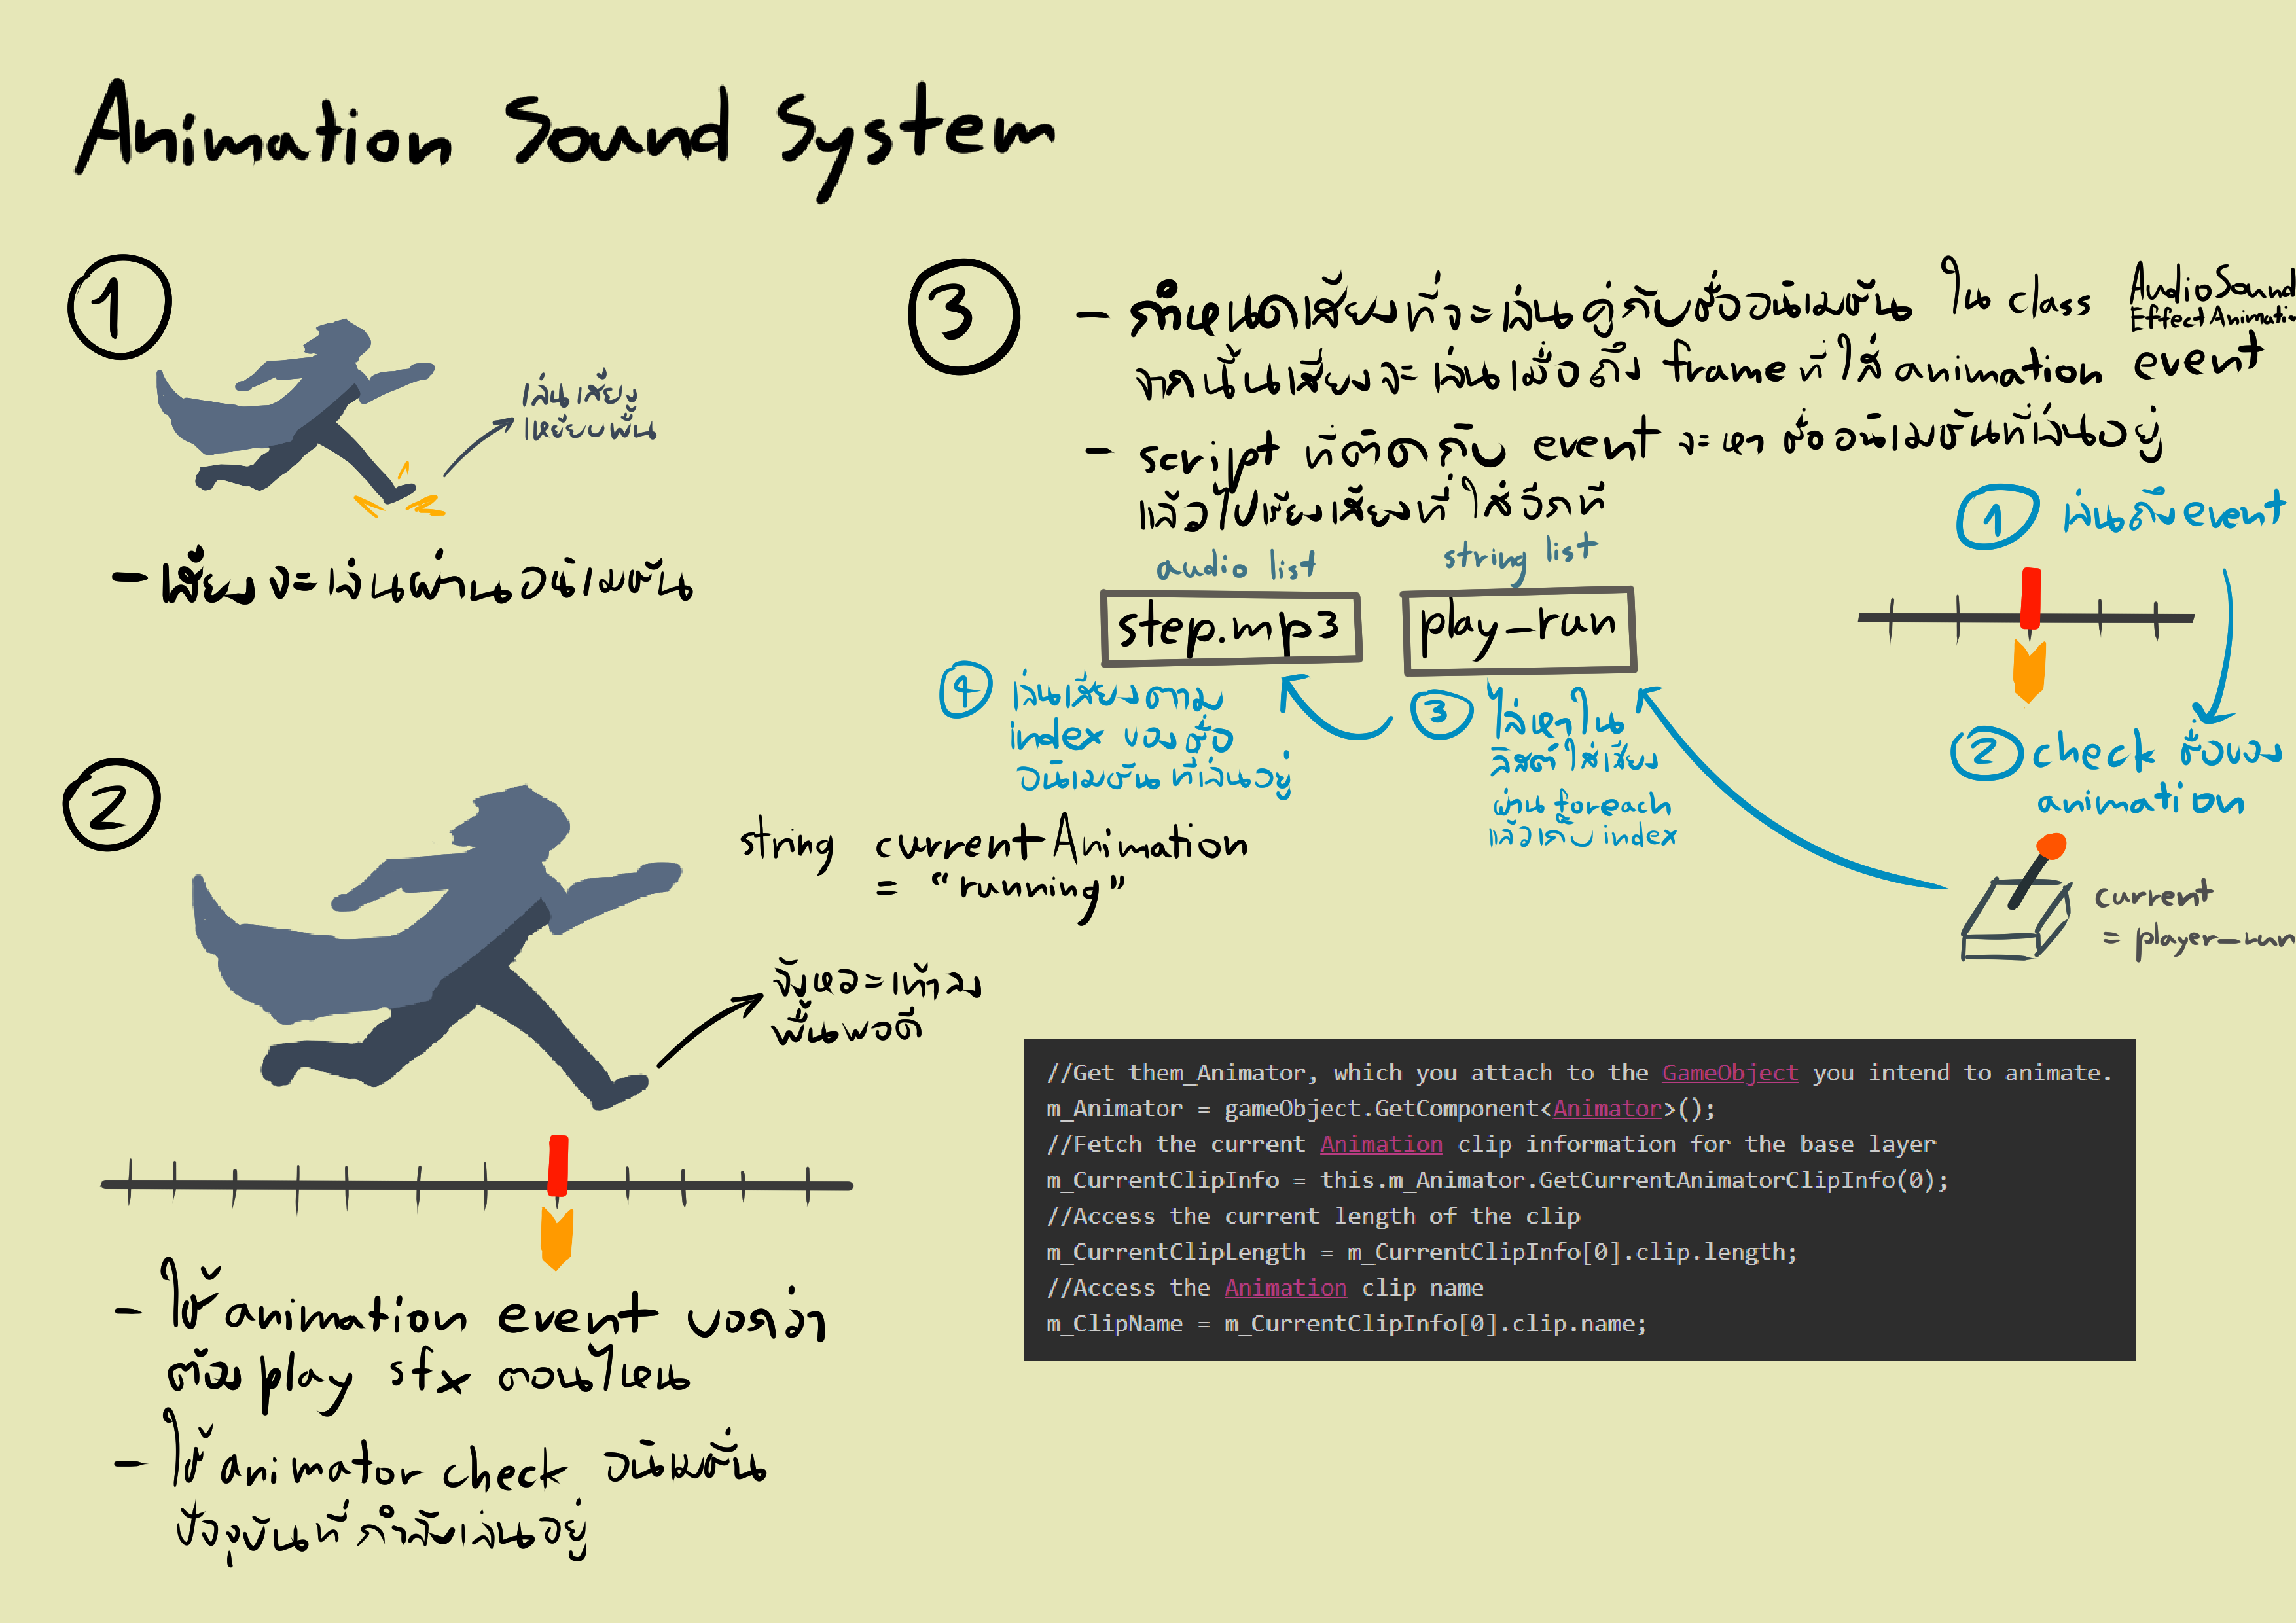 Animation Sound System
1
เล่นเสียง
เหยียบพื้น
- เสียงจะเล่นผ่านอนิเมชัน
2
string currentAnimation
= "running"
จังหวะเท้าลง
พื้นพอดี
- ใช้ animation event บอกว่า
ต้อง play sfx ตอนไหน
- ใช้ animator check อนิเมชั่น
ปัจจุบันที่กำลังเล่นอยู่
3
- กำหนดเสียงที่จะเล่นคู่กับชื่ออนิเมชัน ใน class AudioSound
EffectAnimatio
จากนั้นเสียงจะเล่นเมื่อถึง frame ที่ใส่ animation event
- script ที่ติดกับ event จะหาชื่ออนิเมชันที่เล่นอยู่
แล้วไปเรียงเสียงที่ใส่อีกที
audio list
string list
step.mp3
play-run
1 เล่นถึง event
2 check ชื่อของ
animation
current
= player-run
3 ไล่หาใน
ลิสต์ใส่เสียง
ผ่าน foreach
แล้วเก็บ index
4 เล่นเสียงตาม
index ของชื่อ
อนิเมชันที่เล่นอยู่
//Get them_Animator, which you attach to the GameObject you intend to animate.
m_Animator = gameObject.GetComponent<Animator>();
//Fetch the current Animation clip information for the base layer
m_CurrentClipInfo = this.m_Animator.GetCurrentAnimatorClipInfo(0);
//Access the current length of the clip
m_CurrentClipLength = m_CurrentClipInfo[0].clip.length;
//Access the Animation clip name
m_ClipName = m_CurrentClipInfo[0].clip.name;